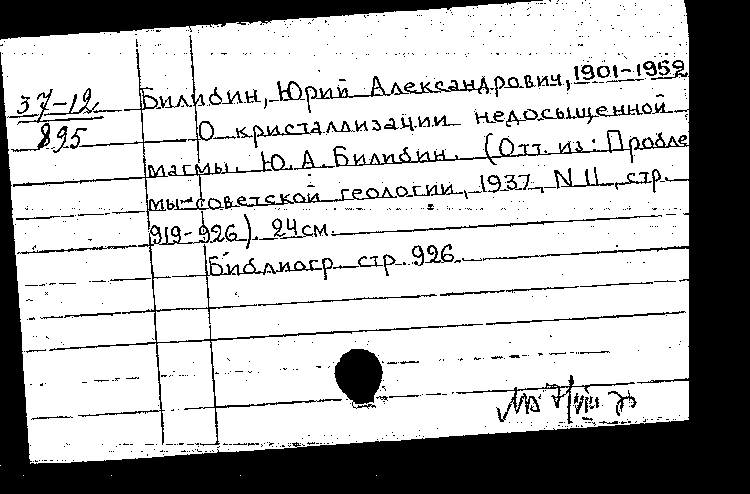 37-12
895
Билибин, Юрий Александрович, 1901-1952
О кристаллизации недосыщенной
магмы. Ю. А. Билибин. (Отт. из: Пробле
мы советской геологии, 1937, N 11, стр.
919-926). 24см.
Библиогр. стр. 926.